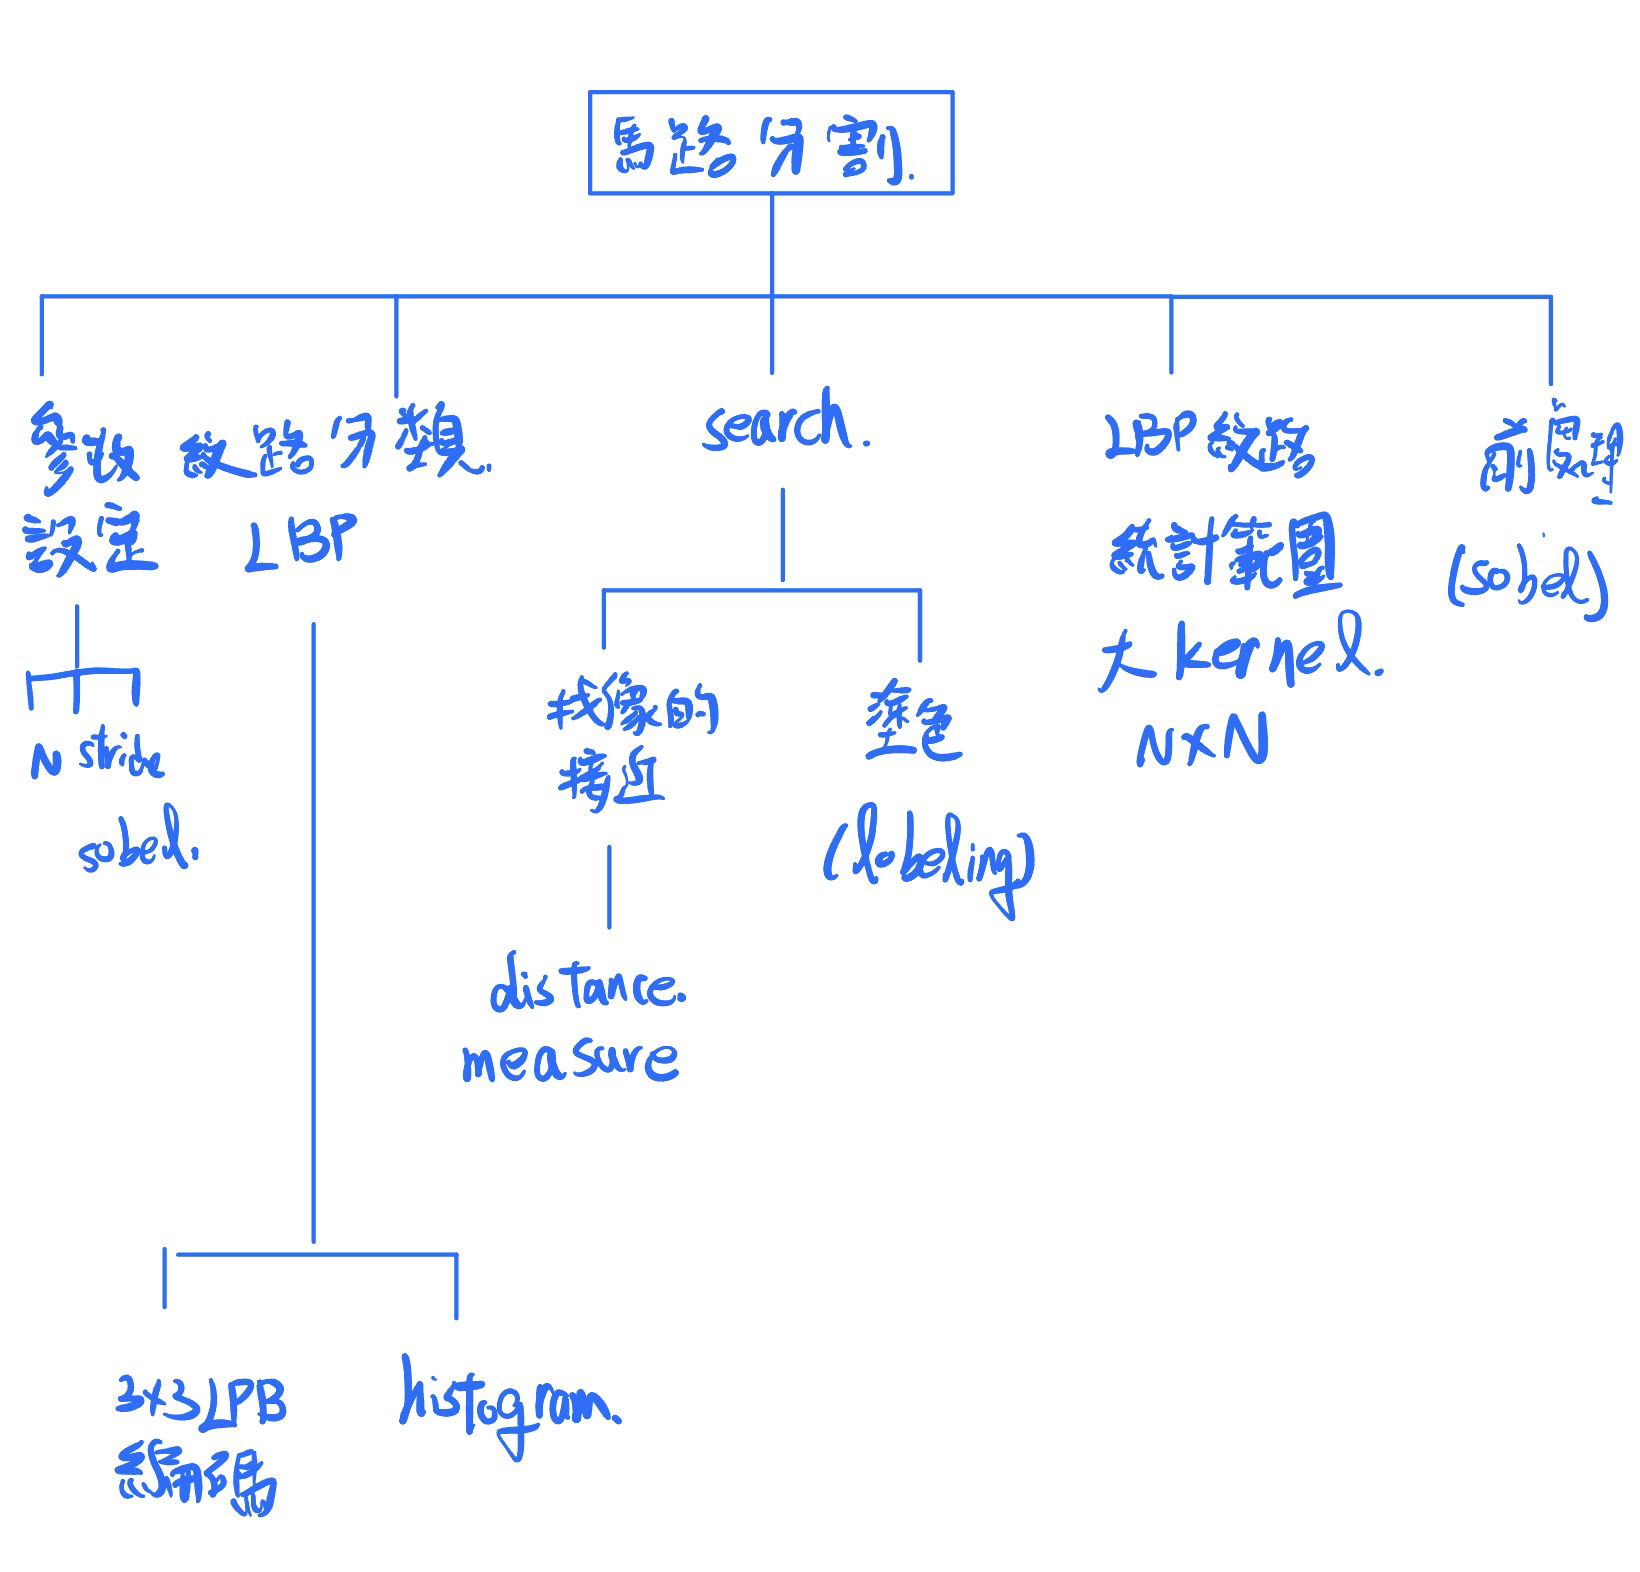 馬路分割.
參數
設定
N stride
sobel.
紋路分類.
LBP
3x3 LPB
編碼
histogram.
search.
找像的
接近
distance.
measure
塗色
(labeling)
LBP紋路
統計範圍
大 kernel.
N×N
前處理
(sobel)